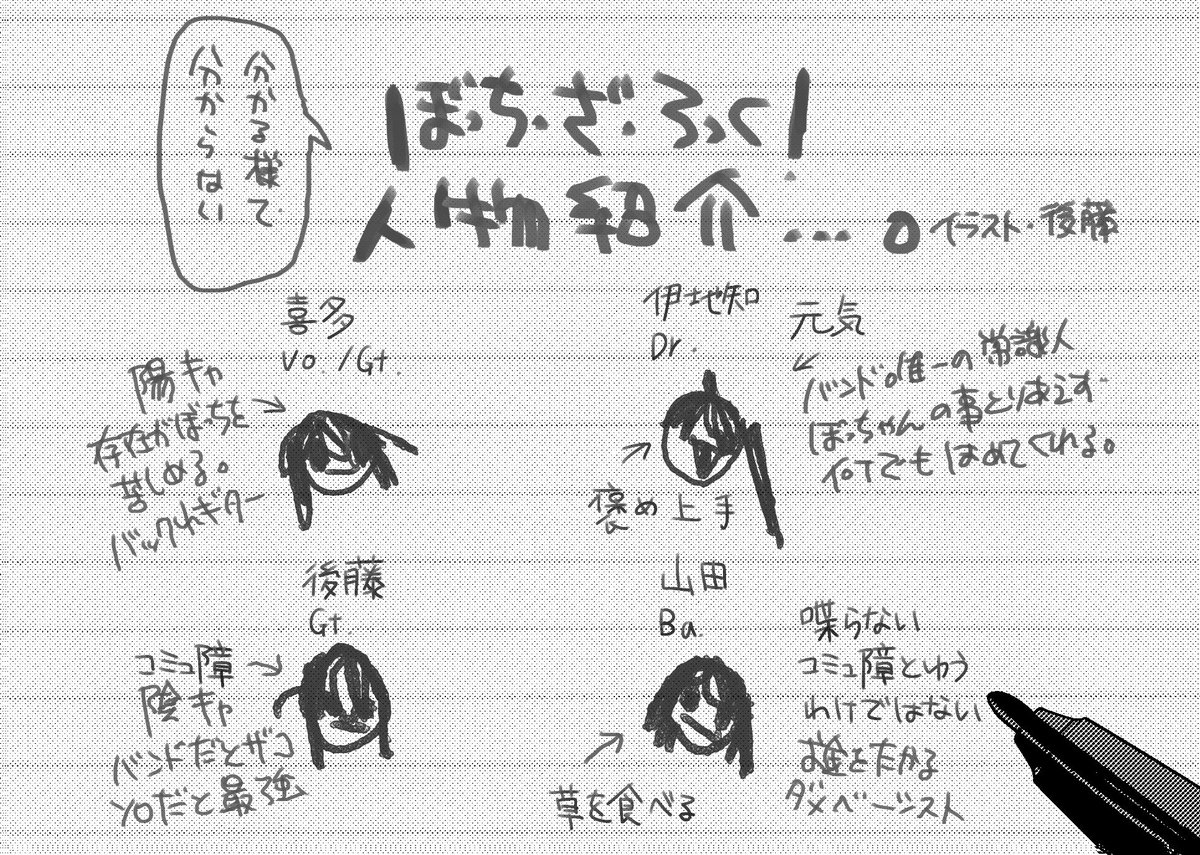 分かる様で
分からない
ぼっち・ざ・ろっく!
人物紹介…。
イラスト・後藤
喜多
Vo./Gt.
陽キャ
存在がぼっちを
苦しめる。
バックれギター
伊地知
Dr.
元気
バンド唯一の常識人
ぼっちゃんの事とりあえず
何でもほめてくれる。
褒め上手
後藤
Gt.
コミュ障
陰キャ
バンドだとザコ
ソロだと最強
山田
Ba.
喋らない
コミュ障とゆう
わけではない
お金をたかる
ダメベーシスト
草を食べる